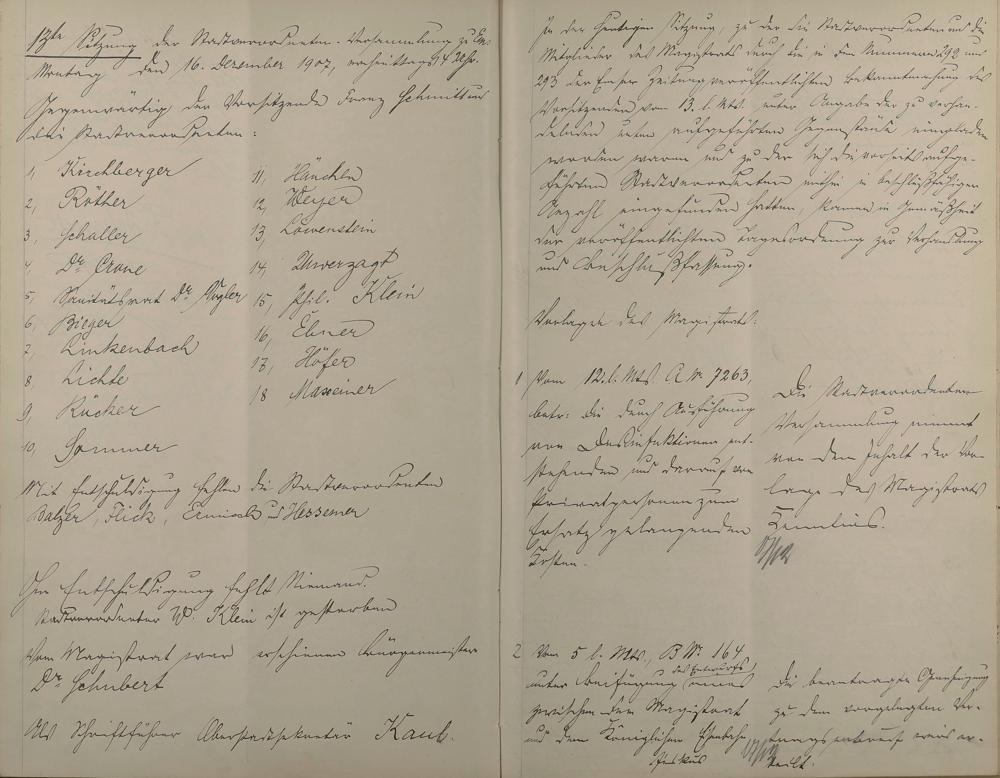 13te Sitzung der Stadtverordneten-Versammlung zu Ems
Montag den 16. Dezember 1907, nachmittags 4 Uhr.
Gegenwärtig der Vorsitzende Franz Schmitt und
die Stadtverordneten:
1, Kirchberger
2, Röther
3, Schaller
4, Dr. Crone
5, Sanitätsrat Dr. Vogler
6, Bieger
7, Linkenbach
8, Lichte
9, Rücker
10, Sommer
11, Hänchen
12, Weyer
13, Löwenstein
14, Unverzagt
15, Phil. Klein
16, Ebner
17, Höfer
18 Masseiner
Mit Entschuldigung fehlen die Stadtverordneten
Balzer, Flick, u. Hessemer
Ohne Entschuldigung fehlt Niemand.
Stadtverordneter W. Klein ist gestorben
Vom Magistrat war erschienen Bürgermeister
Dr. Schubert
Als Schriftführer Oberstadtsekretär Kaul.
In der heutigen Sitzung, zu der die Stadtverordneten und die
Mitglieder des Magistrats durch die in den Nummern 292 und
293 der Emser Zeitung veröffentlichten Bekanntmachung des
Vorsitzenden vom 13. l. Mts. unter Angabe der zu verhan-
delnden unten aufgeführten Gegenstände eingeladen
worden waren und zu der sich die vorseits aufge-
führten Stadtverordneten mithin in beschlußfähiger
Anzahl eingefunden hatten, kamen in Gemäßheit
der veröffentlichten Tagesordnung zur Verhandlung
und Beschlußfassung.
Vorlagen des Magistrats:
1 Vom 12. l. Mts. A No 7263,
betr: die durch Ausführung
von Desinfektionen ent-
stehenden und darauf von
Privatpersonen zum
Ersatz gelangenden
Kosten.
Die Stadtverordneten
Versammlung nimmt
von dem Inhalt der Vor-
lage des Magistrats
Kenntnis.
2 Vom 5 l. Mts., B No 164
unter Beifügung des Entwurfs eines
zwischen dem Magistrat
und dem Königlichen Eisenbahn
fiskus
Die beantragte Genehmigung
zu dem vorgelegten Ver-
tragsentwurf wird er-
teilt.